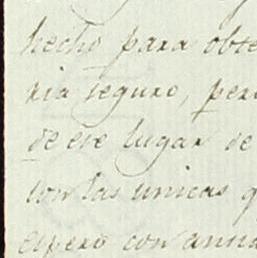 hecho para obte
ria seguro, pero
de ese lugar de
con las unicas q
espero con